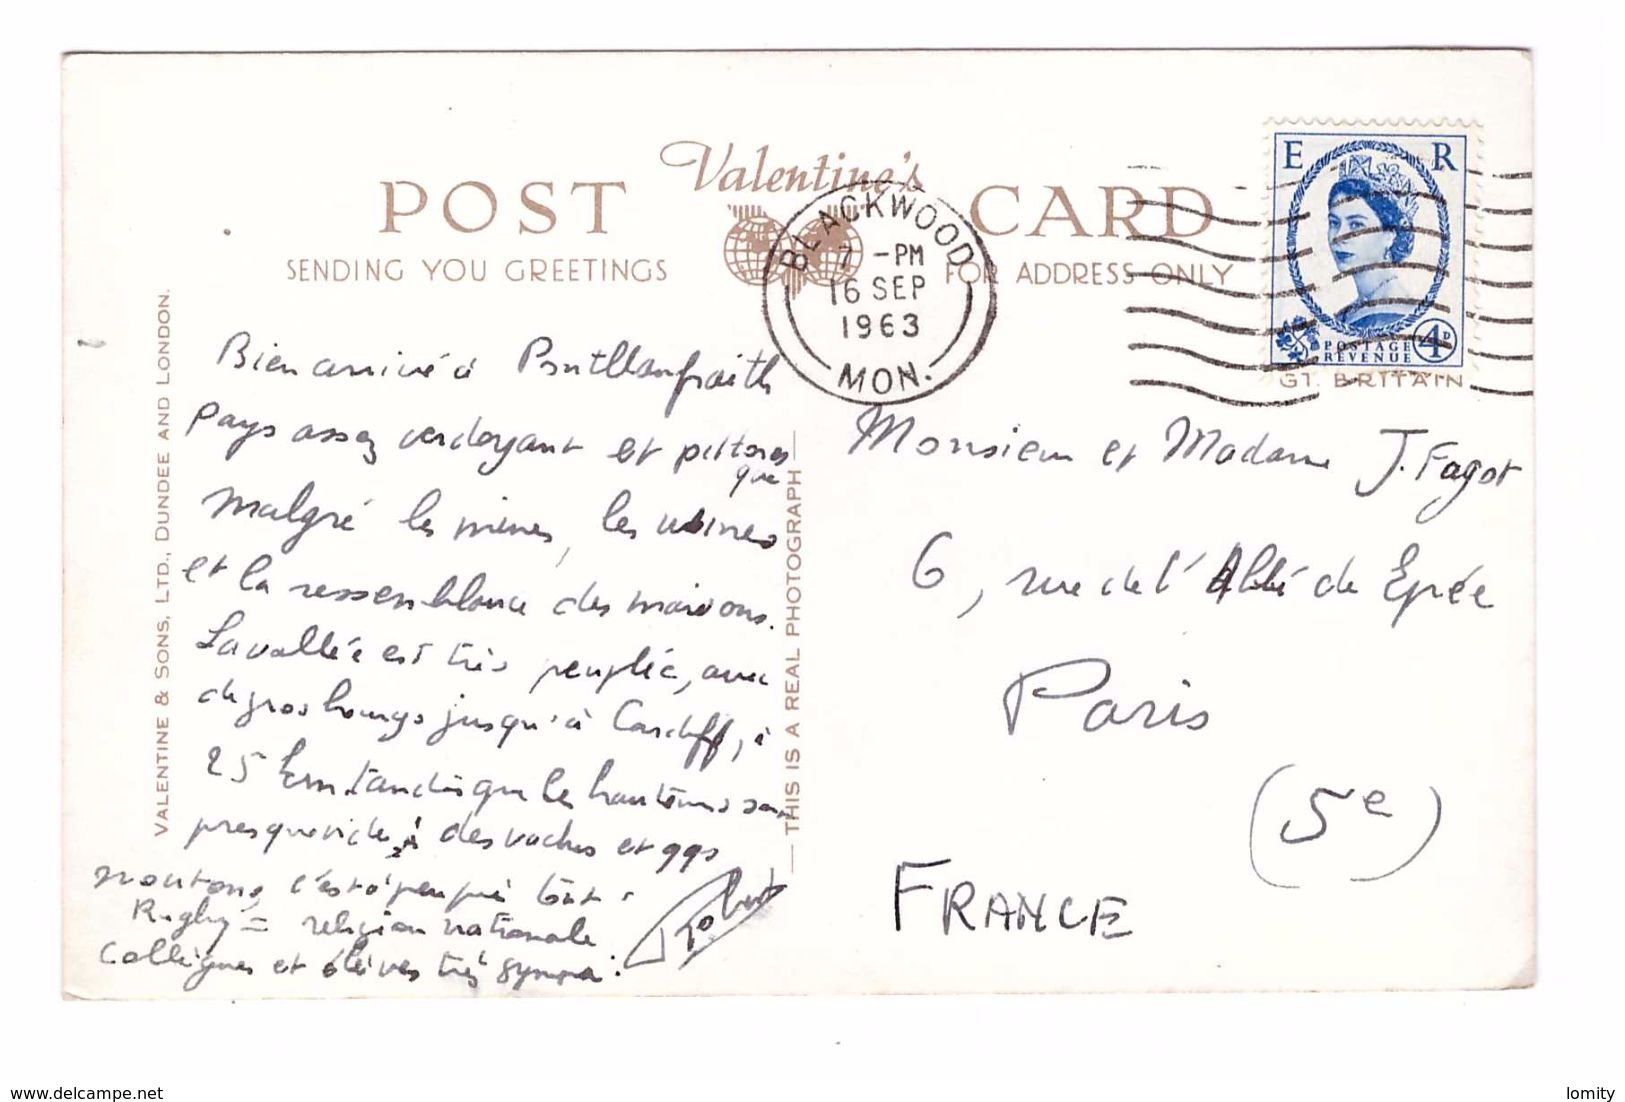 Valentine's
POST CARD
SENDING YOU GREETINGS
FOR ADDRESS ONLY
BLACKWOOD
7 - PM
16 SEP
1963
MON.
E R
POSTAGE
REVENUE
4D
GT. BRITAIN
VALENTINE & SONS, LTD., DUNDEE AND LONDON.
THIS IS A REAL PHOTOGRAPH
Bien arrivé à Pontllanfraith
Pays assez verdoyant et pittores
que
malgré les mines, les usines
et la ressemblance des maisons.
La vallée est très peuplée, avec
de gros bourgs jusqu'à Cardiff, à
25 km. tandis que les hauteurs sont
presque vides : des vaches et qqs
moutons, c'est à peu près tout.
Rugby = religion nationale
Collègues et élèves très sympa.
Robert
Monsieur et Madame J. Fagot
6, rue de l'Abbé de Epée
Paris
(5e)
FRANCE
www.delcampe.net
lomity